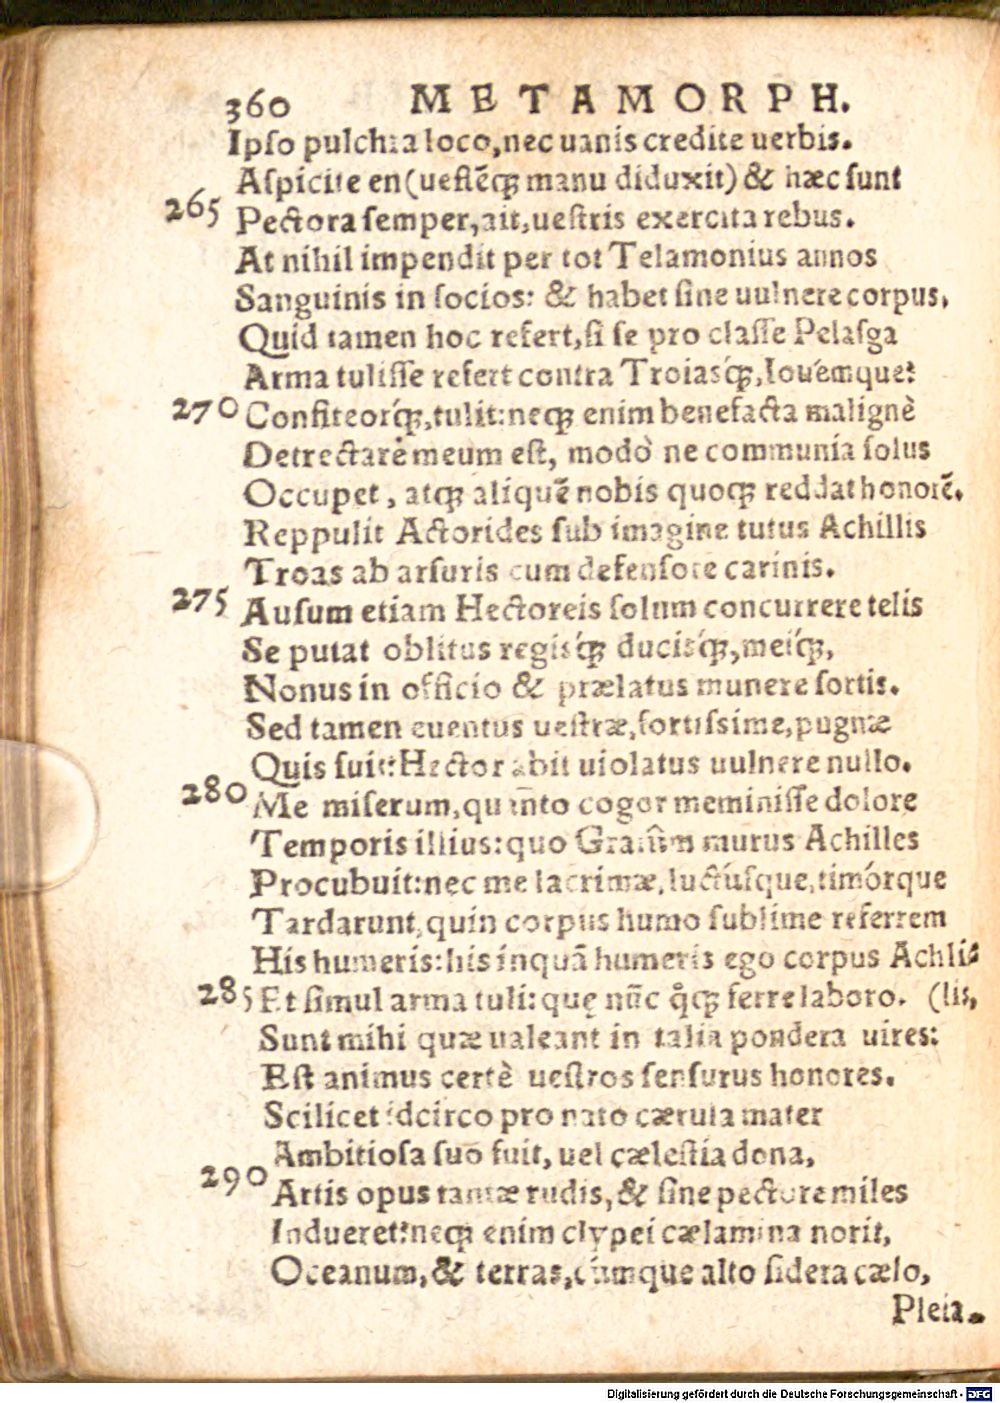 360 METAMORPH.
Ipſo pulchra loco, nec uanis credite uerbis.
Aſpicite en (ueſtẽq́; manu diduxit) & hæc ſunt
265 Pectora ſemper, ait, ueſtris exercita rebus.
At nihil impendit per tot Telamonius annos
Sanguinis in ſocios: & habet ſine uulnere corpus,
Quid tamen hoc refert, ſi ſe pro claſſe Pelaſga
Arma tuliſſe refert contra Troiasq́;, Iouémque?
270 Confiteorq́;, tulit: neq; enim benefacta malignè
Detrectare meum eſt, modò ne communia ſolus
Occupet, atq; aliquẽ nobis quoq; reddat honorẽ.
Reppulit Actorides ſub imagine tutus Achillis
Troas ab arſuris cum defenſore carinis.
275 Auſum etiam Hectoreis ſolum concurrere telis
Se putat oblitus regisq́; ducisq́;, meiq́;,
Nonus in officio & prælatus munere ſortis.
Sed tamen euentus ueſtræ, fortiſsime, pugnæ
Quis fuit? Hector abit uiolatus uulnere nullo.
280 Me miſerum, quãto cogor meminiſſe dolore
Temporis illius: quo Graiûm murus Achilles
Procubuit: nec me lacrimæ, luctúſque, timórque
Tardarunt, quin corpus humo ſublime referrem
His humeris: his inquã humeris ego corpus Achlis
285 Et ſimul arma tuli: quę nũc q̊q; ferre laboro. (lis,
Sunt mihi quæ ualeant in talia pondera uires:
Eſt animus certè ueſtros ſenſurus honores.
Scilicet idcirco pro nato cærula mater
Ambitioſa ſuo fuit, uel cæleſtia dona,
290 Artis opus tantæ rudis, & ſine pectore miles
Indueret? neq; enim clypei cælamina norit,
Oceanum, & terras, cúmque alto ſidera cælo,
Pleia-
Digitalisierung gefördert durch die Deutsche Forschungsgemeinschaft - DFG